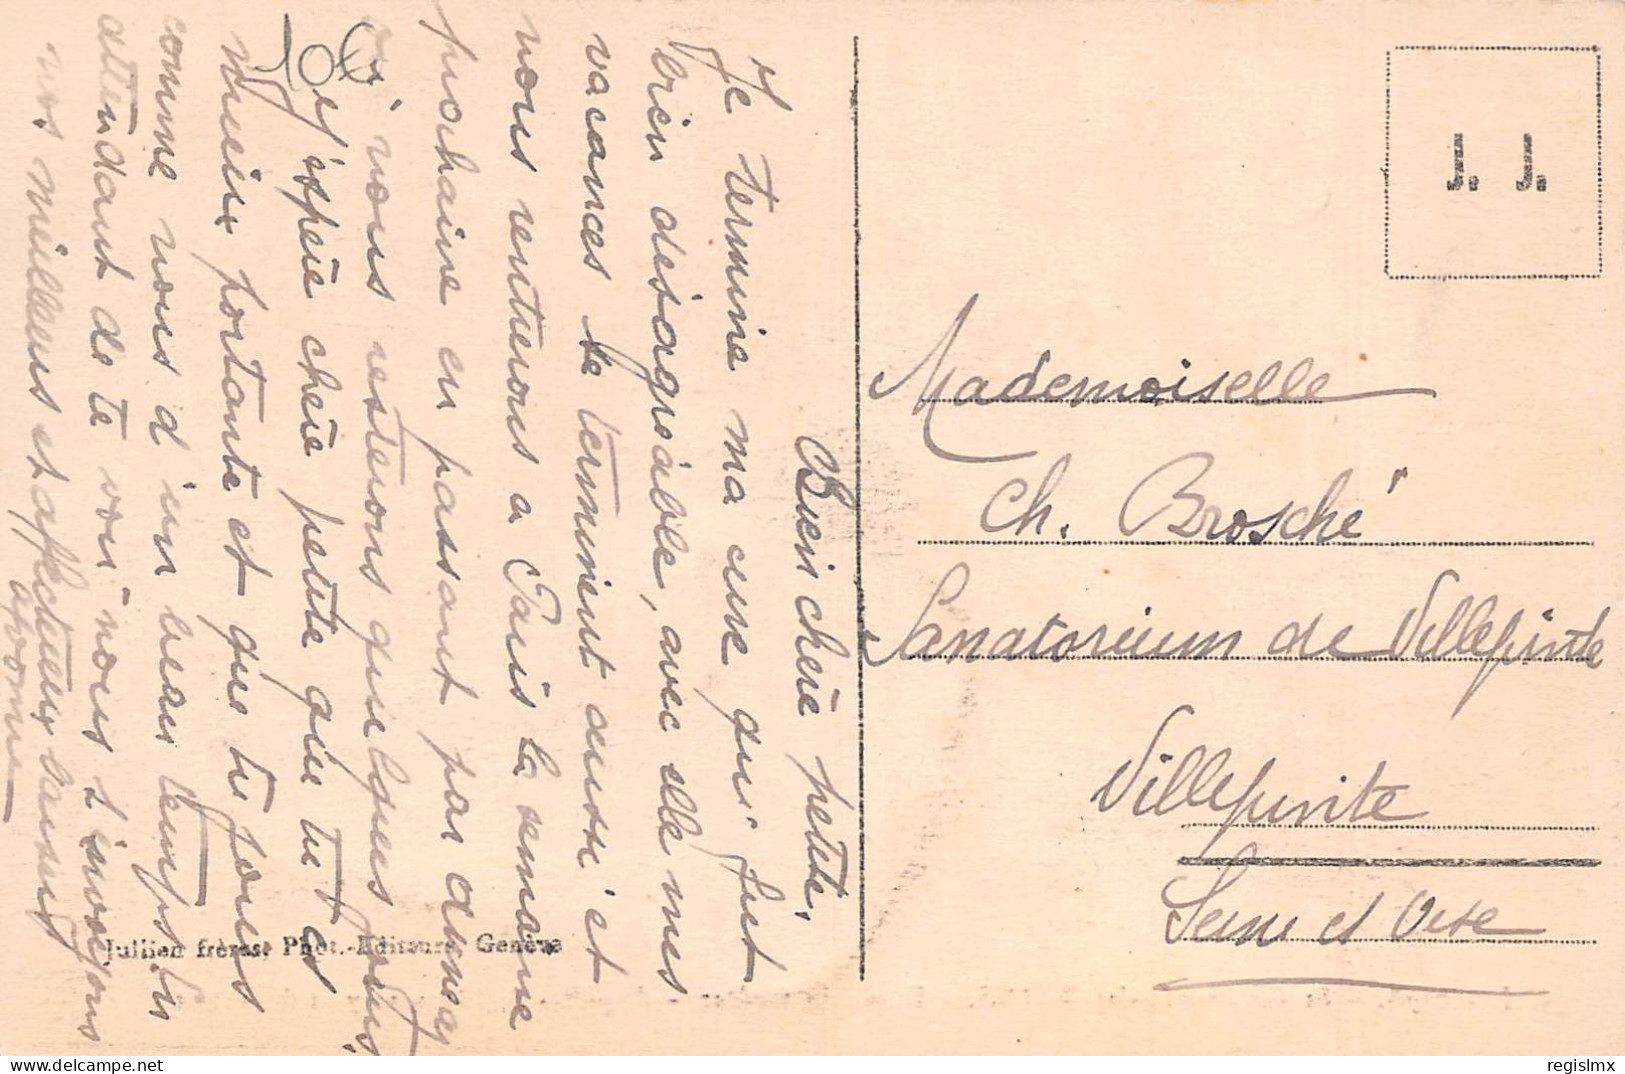 Bien chère petite,
Je termine ma cure qui fut
bien désagréable, avec elle mes
vacances se terminent aussi et
nous rentrons a Paris la semaine
prochaine en passant par
où nous resterons quelques jours
J'espère chère petite que tu es
mieux portante et que tu jouis
comme nous d'un beau temps
attendant de te voir nous t'envoyons
nos meilleurs et affectueux baisers
106
J. J.
Mademoiselle
Ch. Brosché
Sanatorium de Villepinte
Villepinte
Seine et Oise
Jullien frères, Phot.-Editeurs, Genève
regislmx